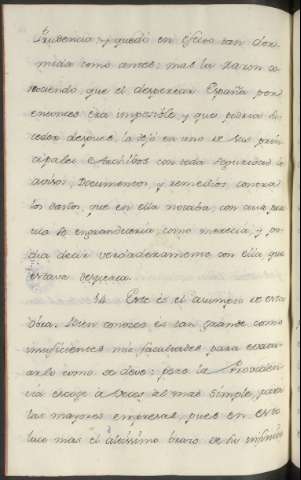 Prudencia; y quedó en efecto tan dor-
mida como antes; mas la Razon co-
nociendo, que el despertar España por
entonces era imposible, y que podria su-
ceder despues, la dejó en uno de sus prin-
cipales Archivos con toda seguridad los
avisos, Documentos, y remedios contra
los daños, que en ella notaba, con cuia
la engrandeceria, como merecia, y po-
dia decir verdaderamente con ella que
estava despierta.
14. Este es el asumpto de esta
obra. Bien conozco es tan grande como
insuficientes mis facultades para
lo como se deve; pero la Providen-
cia escoge à veces al mas simple, para
las mayores empresas, pues en esto
luce mas el altissimo brazo de su infinito